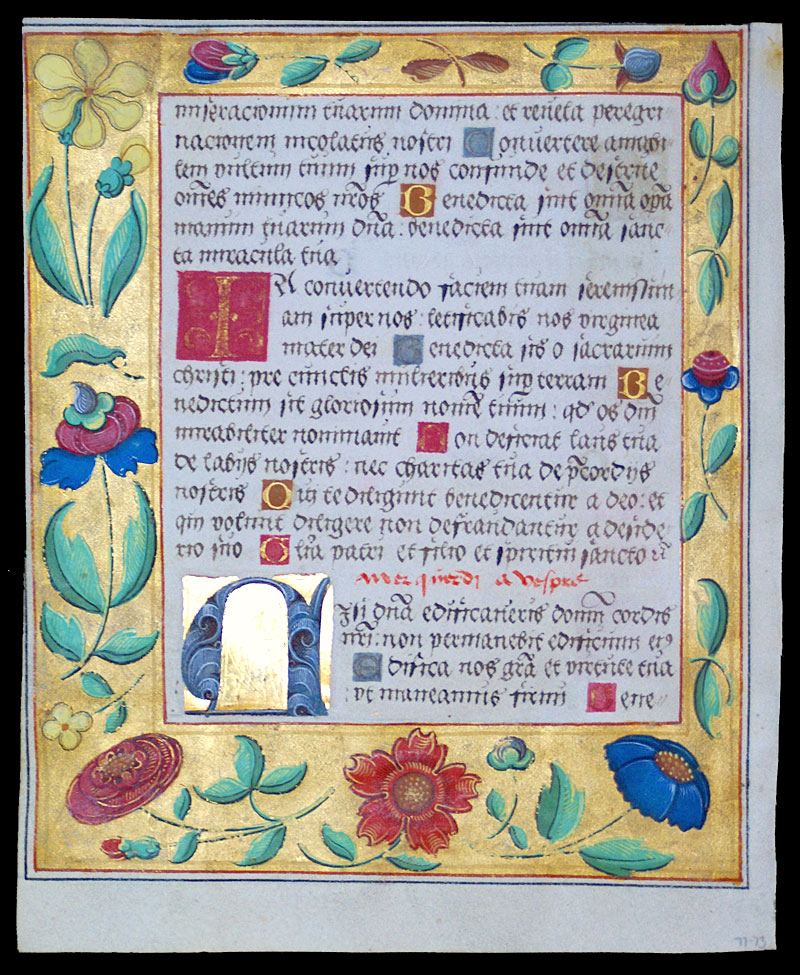 miseracionum tuarum domina: et releva peregri-
nacionem incolatus nostri Convertere amabi-
lem vultum tuum sup nos confunde et destrue
omes inimicos nros Benedicta sint omia opa
manuum tuarum dna: benedicta sint omia sanc-
ta miracula tua
IN convertendo faciem tuam serenissim-
am super nos: letificabis nos virginea
mater dei Benedicta sis o sacrarium
christi: pre cunctis mulieribus sup terram Be-
nedictum sit gloriosum nome tuum: qd os dni
mirabiliter nominavit Non deficiat laus tua
de labijs nostris: nec charitas tua de pcordijs
nostris Qui te diligunt benedicentur a deo: et
qui volunt diligere non defraudantur a deside-
rio suo Glia patri et filio et spiritui sancto
Merquerdi a vespre
NIsi dna edificaveris domu cordis
nri: non permanebit edificium ei9
Edifica nos gra et virtute tua
: ut maneamus firmi Bene-
77-73